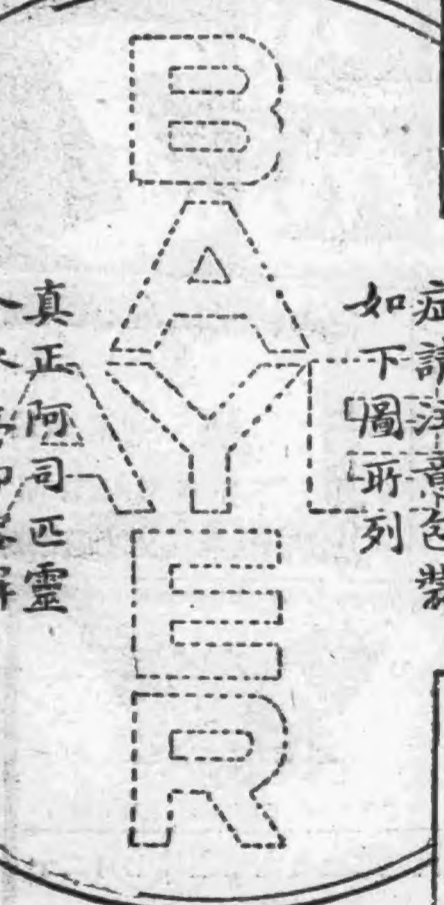 BAYER
症請注意包裝
如下圖所列
真正阿司匹靈